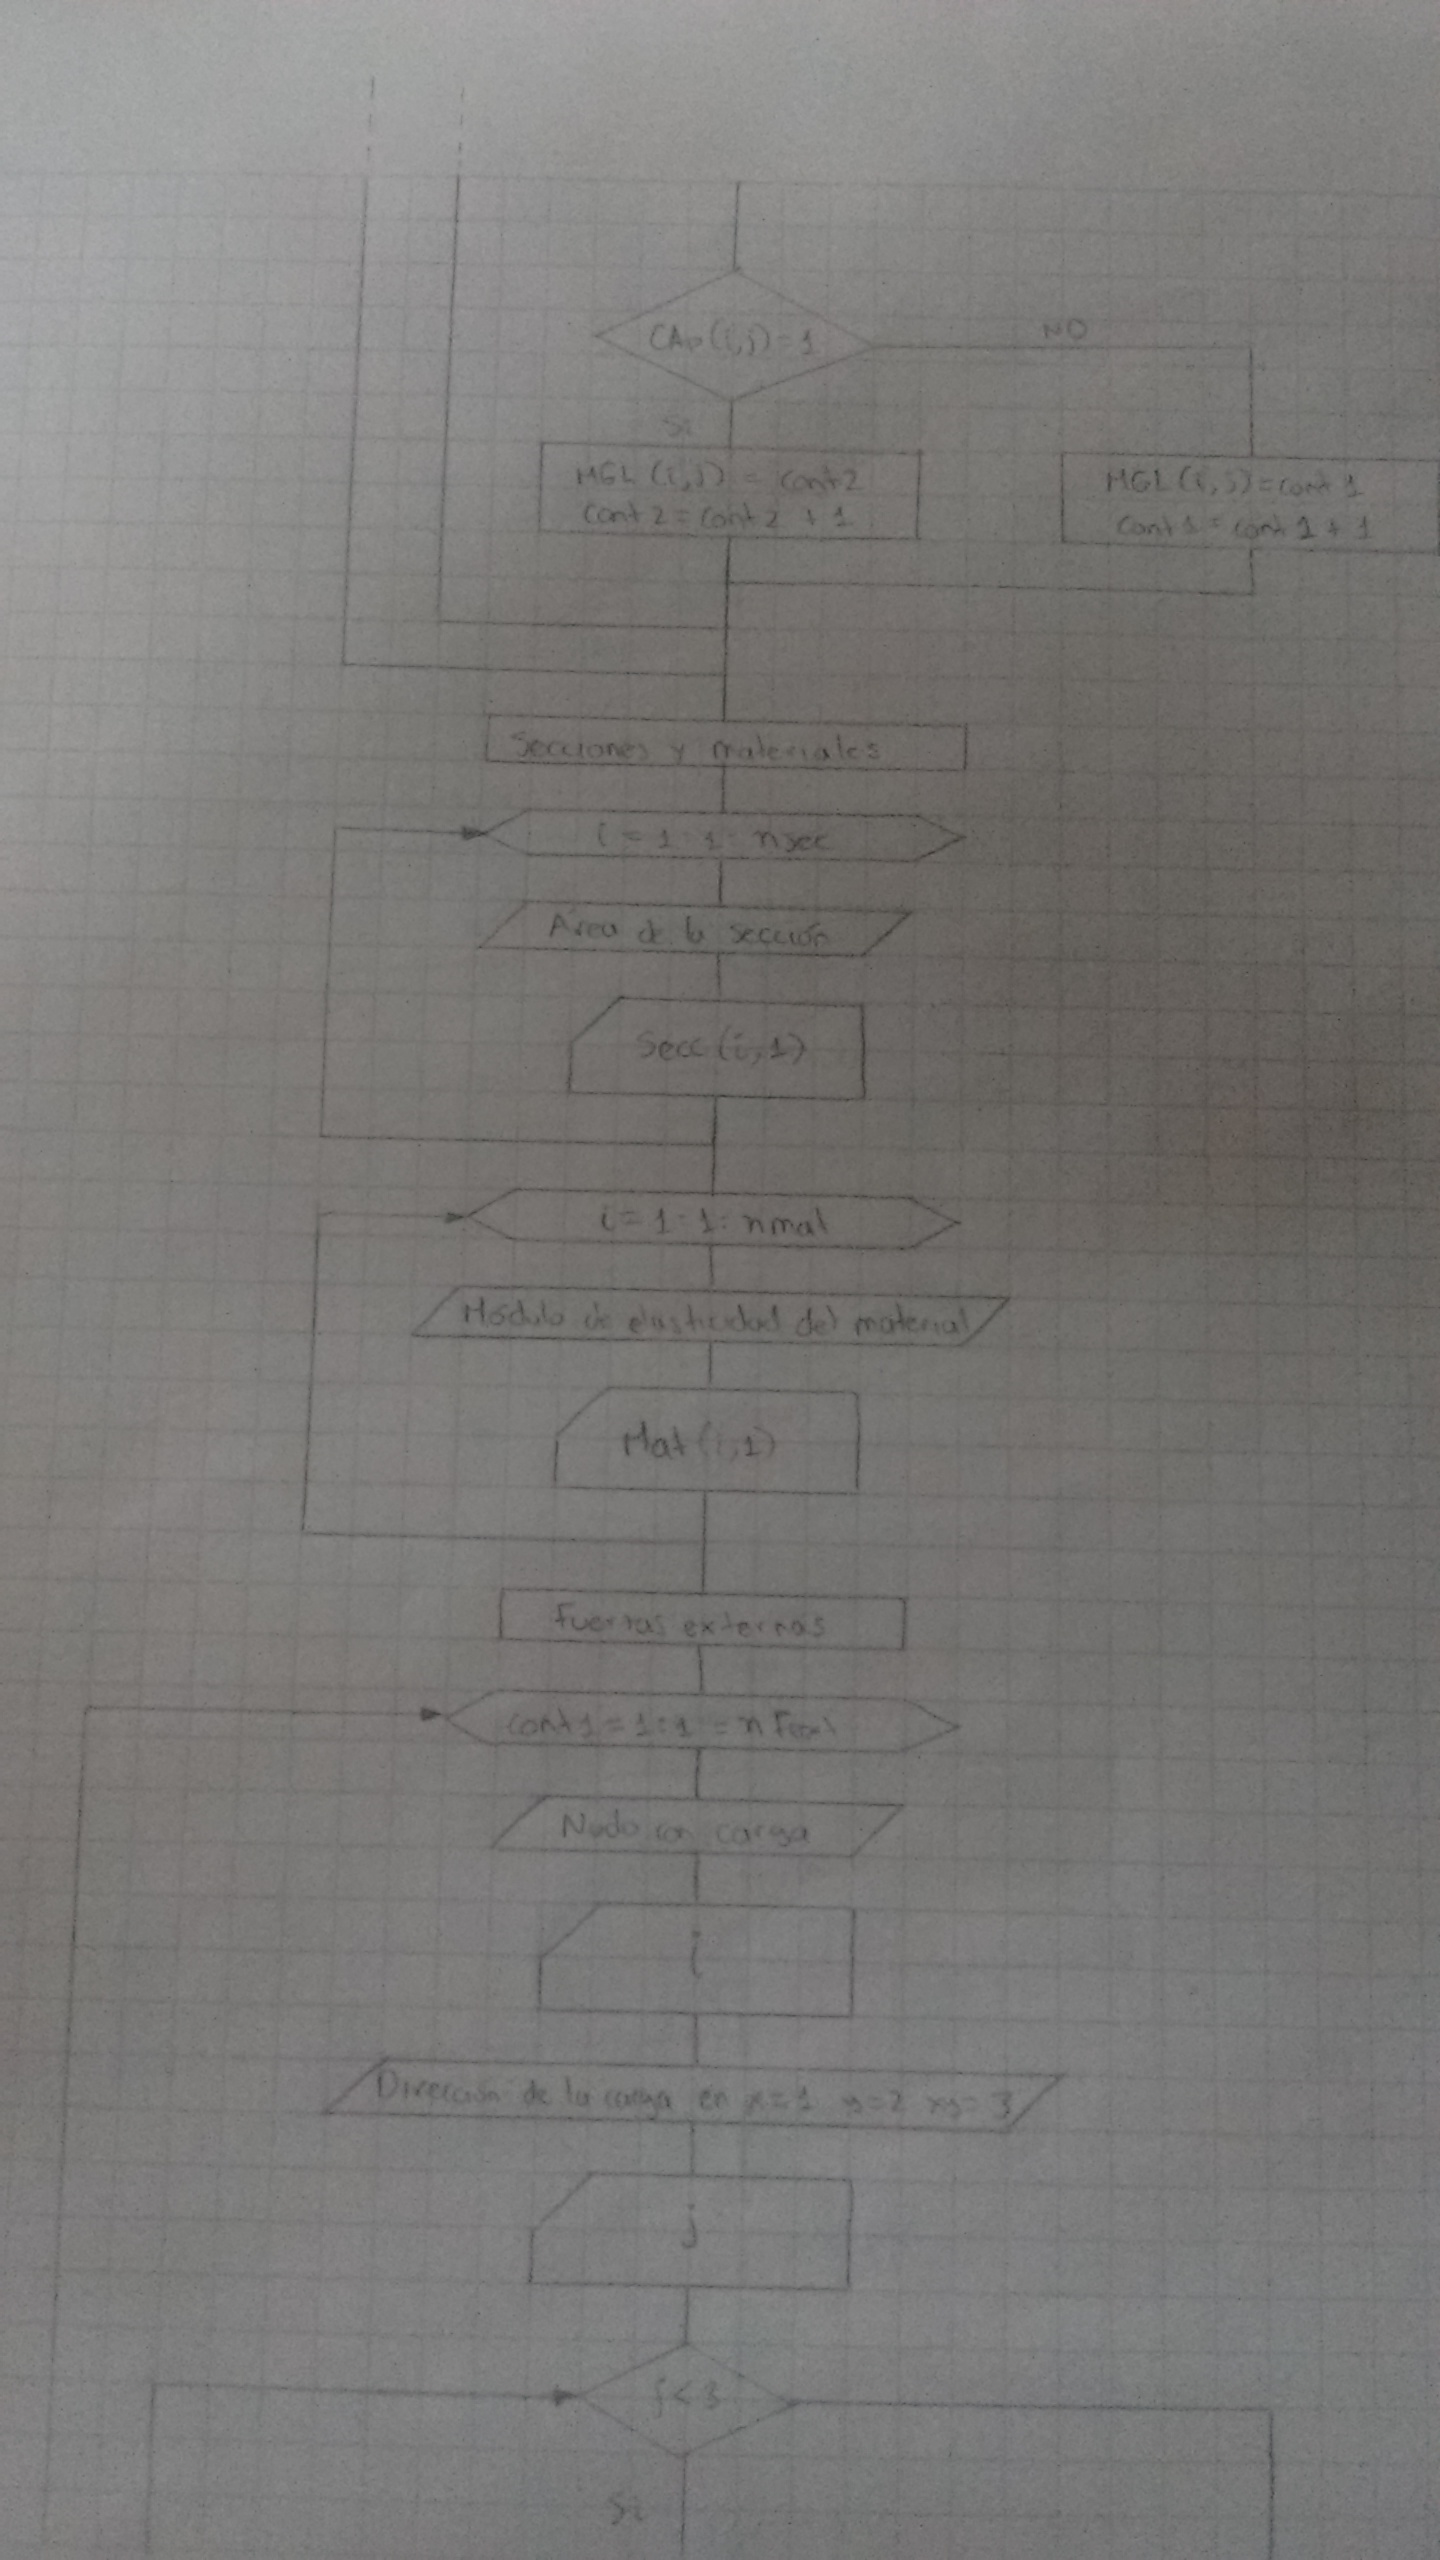 CAp(i,j)=1
NO
Si
MGL(i,j) = cont2
cont2 = cont2 + 1
MGL(i,j)=cont1
cont1 = cont1 + 1
Secciones y materiales
i = 1:1: nsec
Área de la sección
Secc(i,1)
i = 1:1: nmat
Módulo de elasticidad del material
Mat(i,1)
Fuerzas externas
cont1 = 1:1 =
Nudo con carga
i
Dirección de la carga en x=1 y=2 xy=3
j
j<3
Si